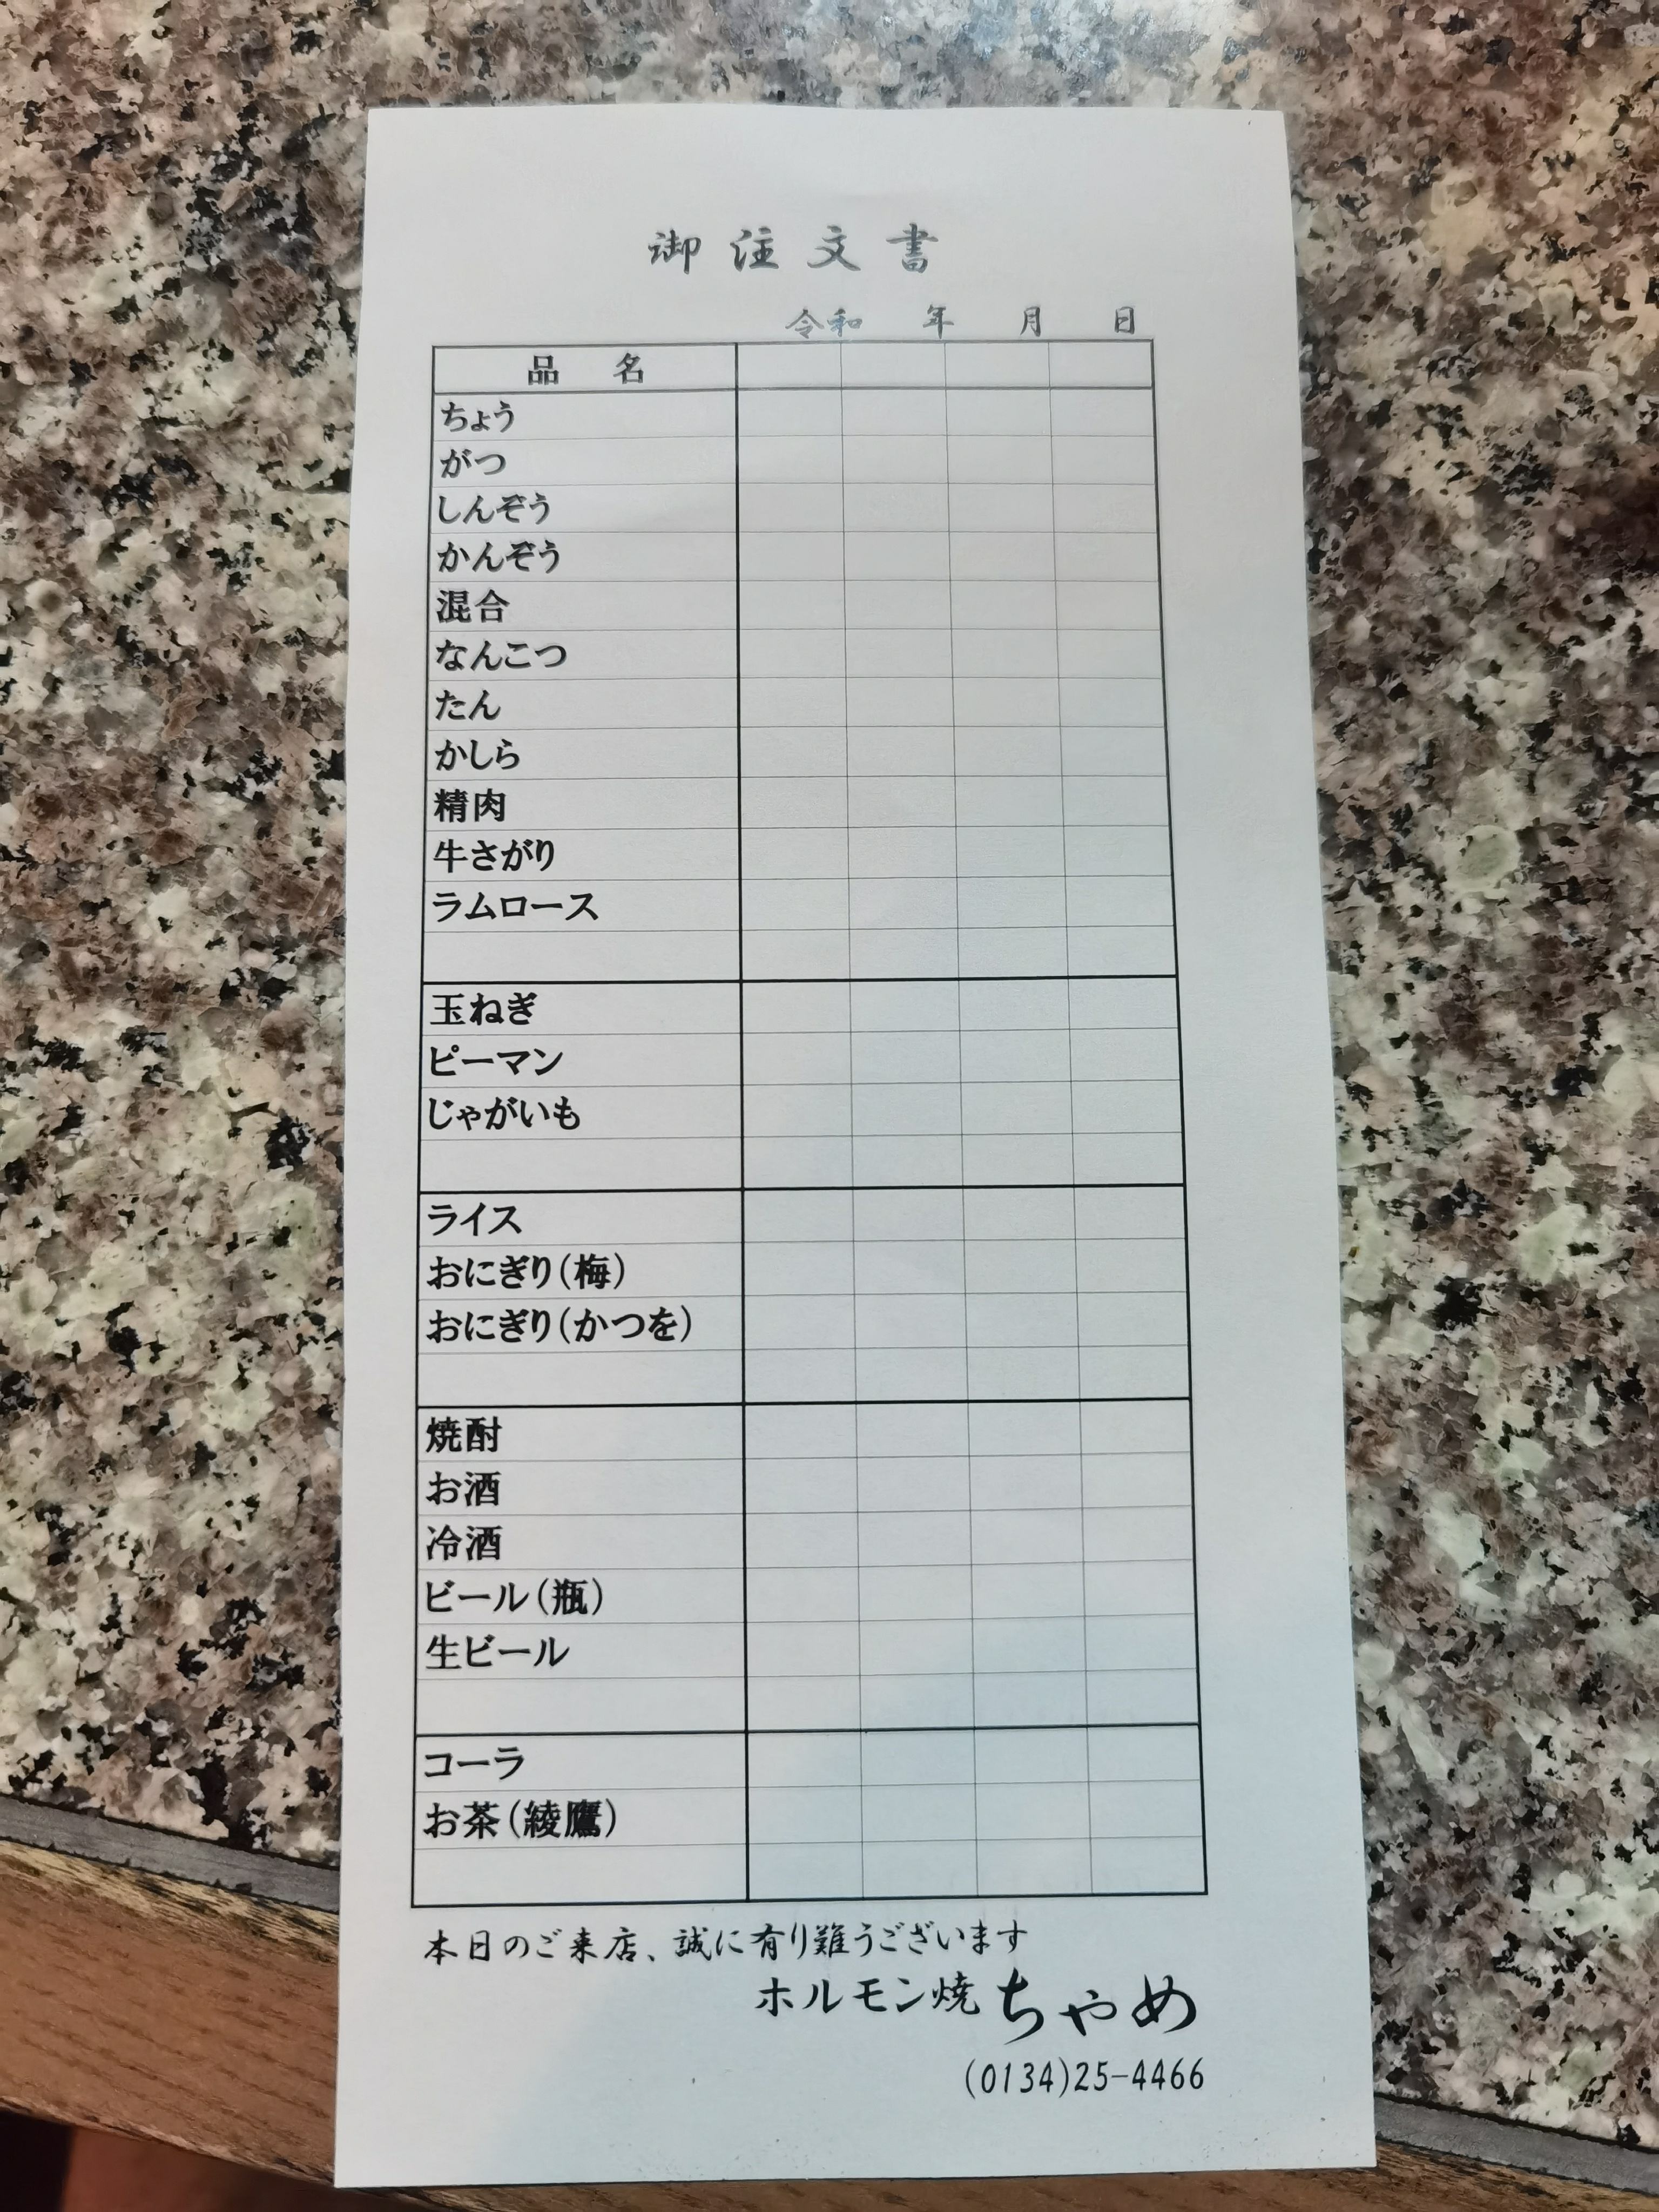 御注文書
令和 年 月 日
品 名
ちょう
がつ
しんぞう
かんぞう
混合
なんこつ
たん
かしら
精肉
牛さがり
ラムロース
玉ねぎ
ピーマン
じゃがいも
ライス
おにぎり(梅)
おにぎり(かつを)
焼酎
お酒
冷酒
ビール(瓶)
生ビール
コーラ
お茶(綾鷹)
本日のご来店、誠に有り難うございます
ホルモン焼 ちゃめ
(0134)25-4466